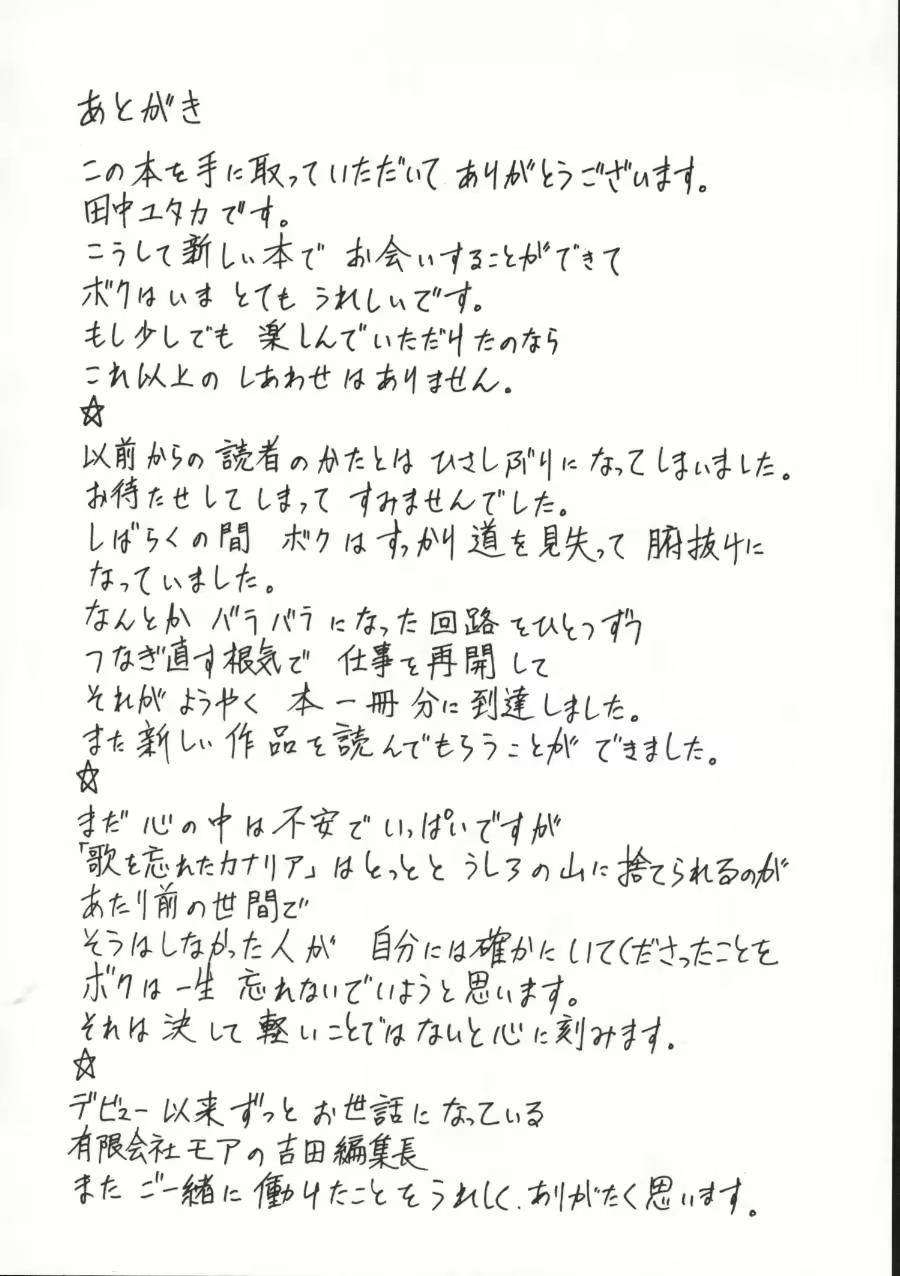 あとがき
この本を手に取っていただいて ありがとうございます。
田中ユタカです。
こうして新しい本で お会いすることができて
ボクはいま とても うれしいです。
もし少しでも 楽しんでいただけたのなら
これ以上の しあわせはありません。
☆
以前からの読者のかたとは ひさしぶりになってしまいました。
お待たせしてしまって すみませんでした。
しばらくの間 ボクはすっかり道を見失って 腑抜けに
なっていました。
なんとか バラバラになった回路をひとつずつ
つなぎ直す根気で 仕事を再開して
それがようやく 本一冊分に到達しました。
また新しい作品を読んでもらうことが できました。
☆
まだ 心の中は不安でいっぱいですが
「歌を忘れたカナリア」はとっとと うしろの山に捨てられるのが
あたり前の世間で
そうはしなかった人が 自分には確かにいてくださったことを
ボクは一生 忘れないでいようと思います。
それは決して軽いことではないと心に刻みます。
☆
デビュー以来ずっと お世話になっている
有限会社モアの吉田編集長
また ご一緒に働けたことをうれしく、ありがたく思います。